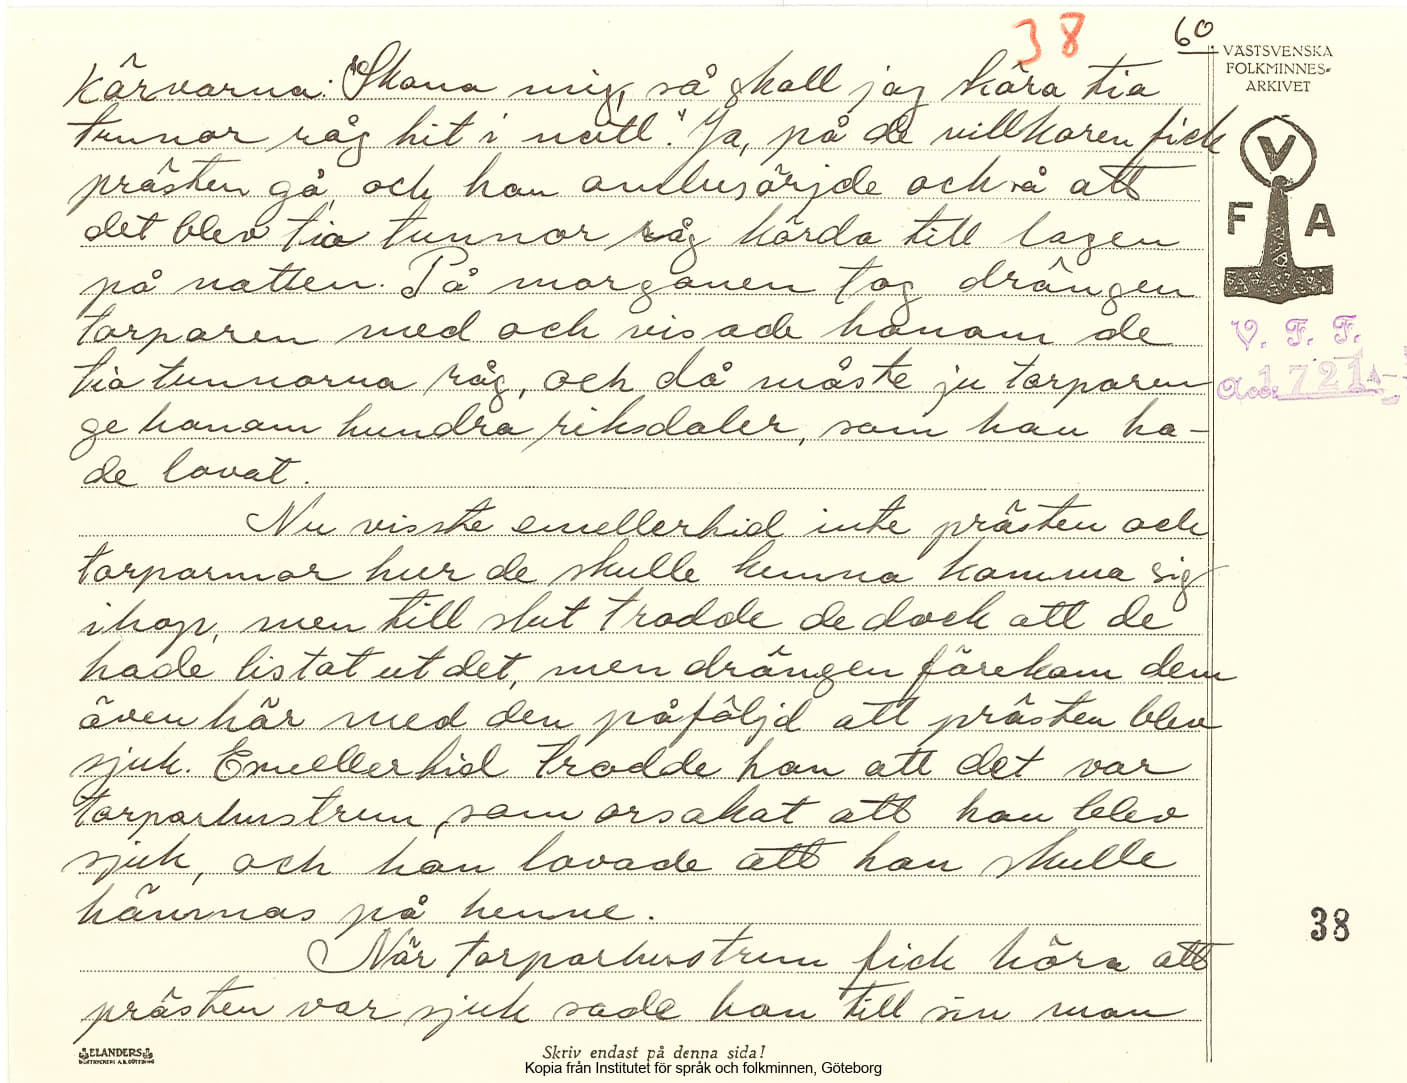 38
60.
VÄSTSVENSKA
FOLKMINNES-
ARKIVET
kärvarna: "Skona mig, så skall jag köra tio
tunnor råg hit i natt." Ja, på de villkoren fick
prästen gå, och han ombesörjde också att
det blev tio tunnor råg körda till logen
på natten. På morgonen tog drängen
torparen med och visade honom de
tio tunnorna råg, och då måste ju torparen
ge honom hundra riksdaler, som han ha-
de lovat.
Nu visste emellertid inte prästen och
torparmor hur de skulle kunna komma sig
ihop, men till slut trodde de dock att de
hade listat ut det, men drängen förekom dem
även här med den påföljd att prästen blev
sjuk. Emellertid trodde han att det var
torparhustrun, som orsakat att han blev
sjuk, och han lovade att han skulle
hämnas på henne.
När torparhustrun fick höra att
prästen var sjuk sade hon till sin man
V
F A
V. F. F.
Acc. 1721
38
ELANDERS
Skriv endast på denna sida!
Kopia från Institutet för språk och folkminnen, Göteborg